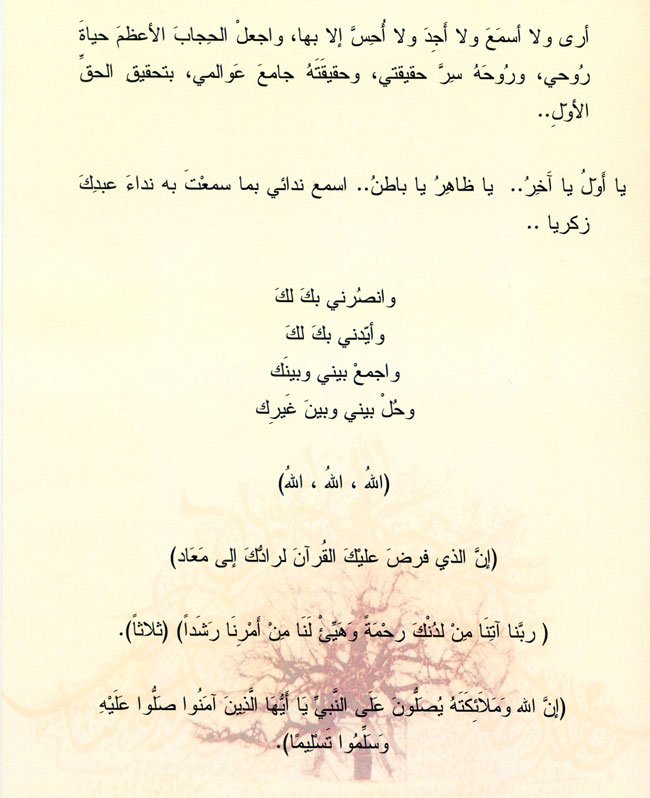 أرى ولا أسمَعَ ولا أَجِدَ ولا أُحِسَّ إلا بها، واجعلْ الحِجابَ الأعظمَ حياةَ
رُوحي، ورُوحَهُ سِرَّ حقيقتي، وحقيقَتَهُ جامعَ عَوالمي، بتحقيق الحقِّ
الأوّلِ..
يا أَوّلُ يا آَخِرُ.. يا ظاهِرُ يا باطنُ.. اسمع ندائي بما سمعْتَ به نداءَ عبدِكَ
زكريا ..
وانصُرني بكَ لكَ
وأيّدني بكَ لكَ
واجمعْ بيني وبينَك
وحُلْ بيني وبينَ غَيرِك
(اللهُ ، اللهُ ، اللهُ)
(إنَّ الذي فرضَ عليْكَ القُرآنَ لرادُّكَ إلى مَعَاد)
( ربَّنا آتِنَا مِنْ لدُنْكَ رحْمَةً وَهَيِّئْ لَنَا مِنْ أَمْرِنَا رَشَداً) (ثلاثاً).
(إنَّ الله وَمَلاَئِكَتَهُ يُصَلُّونَ عَلَى النَّبيِّ يَا أَيُّهَا الَّذِينَ آمَنُوا صَلُّوا عَلَيْهِ
وَسَلِّمُوا تَسْلِيمًا).